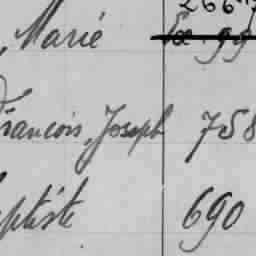 266
, Marié
François, Joseph 758
aptiste 690